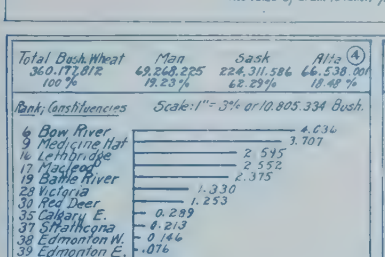 Total Bush. Wheat Man Sask Alta 4
360.177,812 69.268.225 224,311.586 66.538.001
100% 19.23% 62.29% 18.48%
Rank; Constituencies Scale: 1" = 3% or 10.805.334 Bush.
6 Bow River 4.636
9 Medicine Hat 3.707
16 Lethbridge 2.595
17 Macleod 2.552
19 Battle River 2.375
28 Victoria 1.330
30 Red Deer 1.253
35 Calgary E. 0.289
37 Strathcona 0.213
38 Edmonton W. 0.146
39 Edmonton E. .076